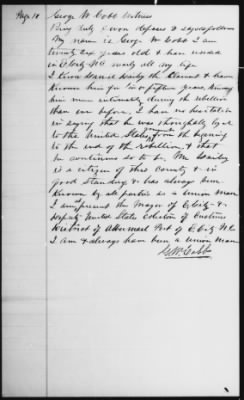 Page 18
George W Cobb Witness
Being duly sworn deposes & says as follows
My name is George W Cobb I am
years old & have lived
in E City NC nearly all my life
I know the Claimant & have
known him for fifteen years, knowing
him more intimately during the rebellion
than ever before, I have no hesitation
in saying that he was thoroughly loyal
to the United States, from the beginning
to the end of the rebellion, & that
he continues so to be. Mr
is a citizen of this County & in
good standing & has always been
known by all parties as a Union man
I am at present the Mayor of E City &
deputy United States Collector of Customs
District of Albemarle Port of E City N.C.
I am & always have been a Union man
G W Cobb